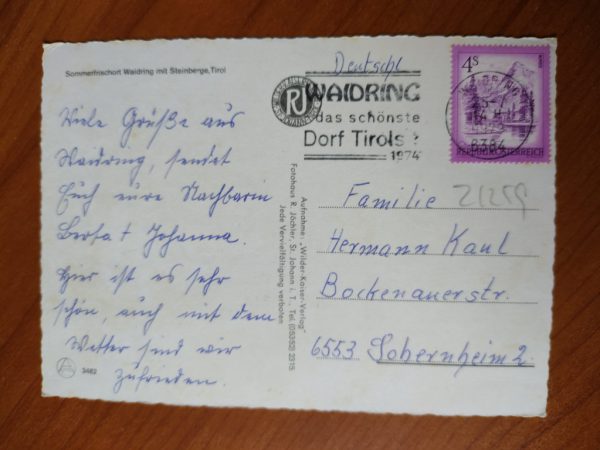 Sommerfrischort Waidring mit Steinberge, Tirol
Viele Grüße aus
Waidring, sendet
Euch eure Nachbarin
Berta + Johanna.
Hier ist es sehr
schön, auch mit dem
Wetter sind wir
zufrieden.
3462
Aufnahme: „Wilder-Kaiser-Verlag"
Fotohaus R. Jöchler, St. Johann i. T., Tel. (05352) 2315.
Jede Vervielfältigung verboten
Deutschl.
WAIDRING
das schönste
Dorf Tirols
1974
4S
6384
REPUBLIK ÖSTERREICH
Familie
Hermann Kaul
Bockenauerstr.
6553 Sobernheim 2.